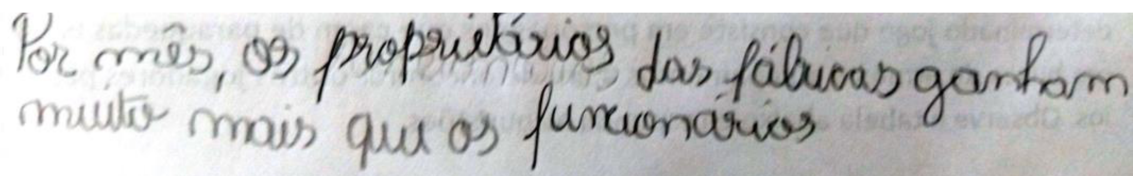 Por mês, os proprietários das fábricas ganham
muito mais que os funcionários